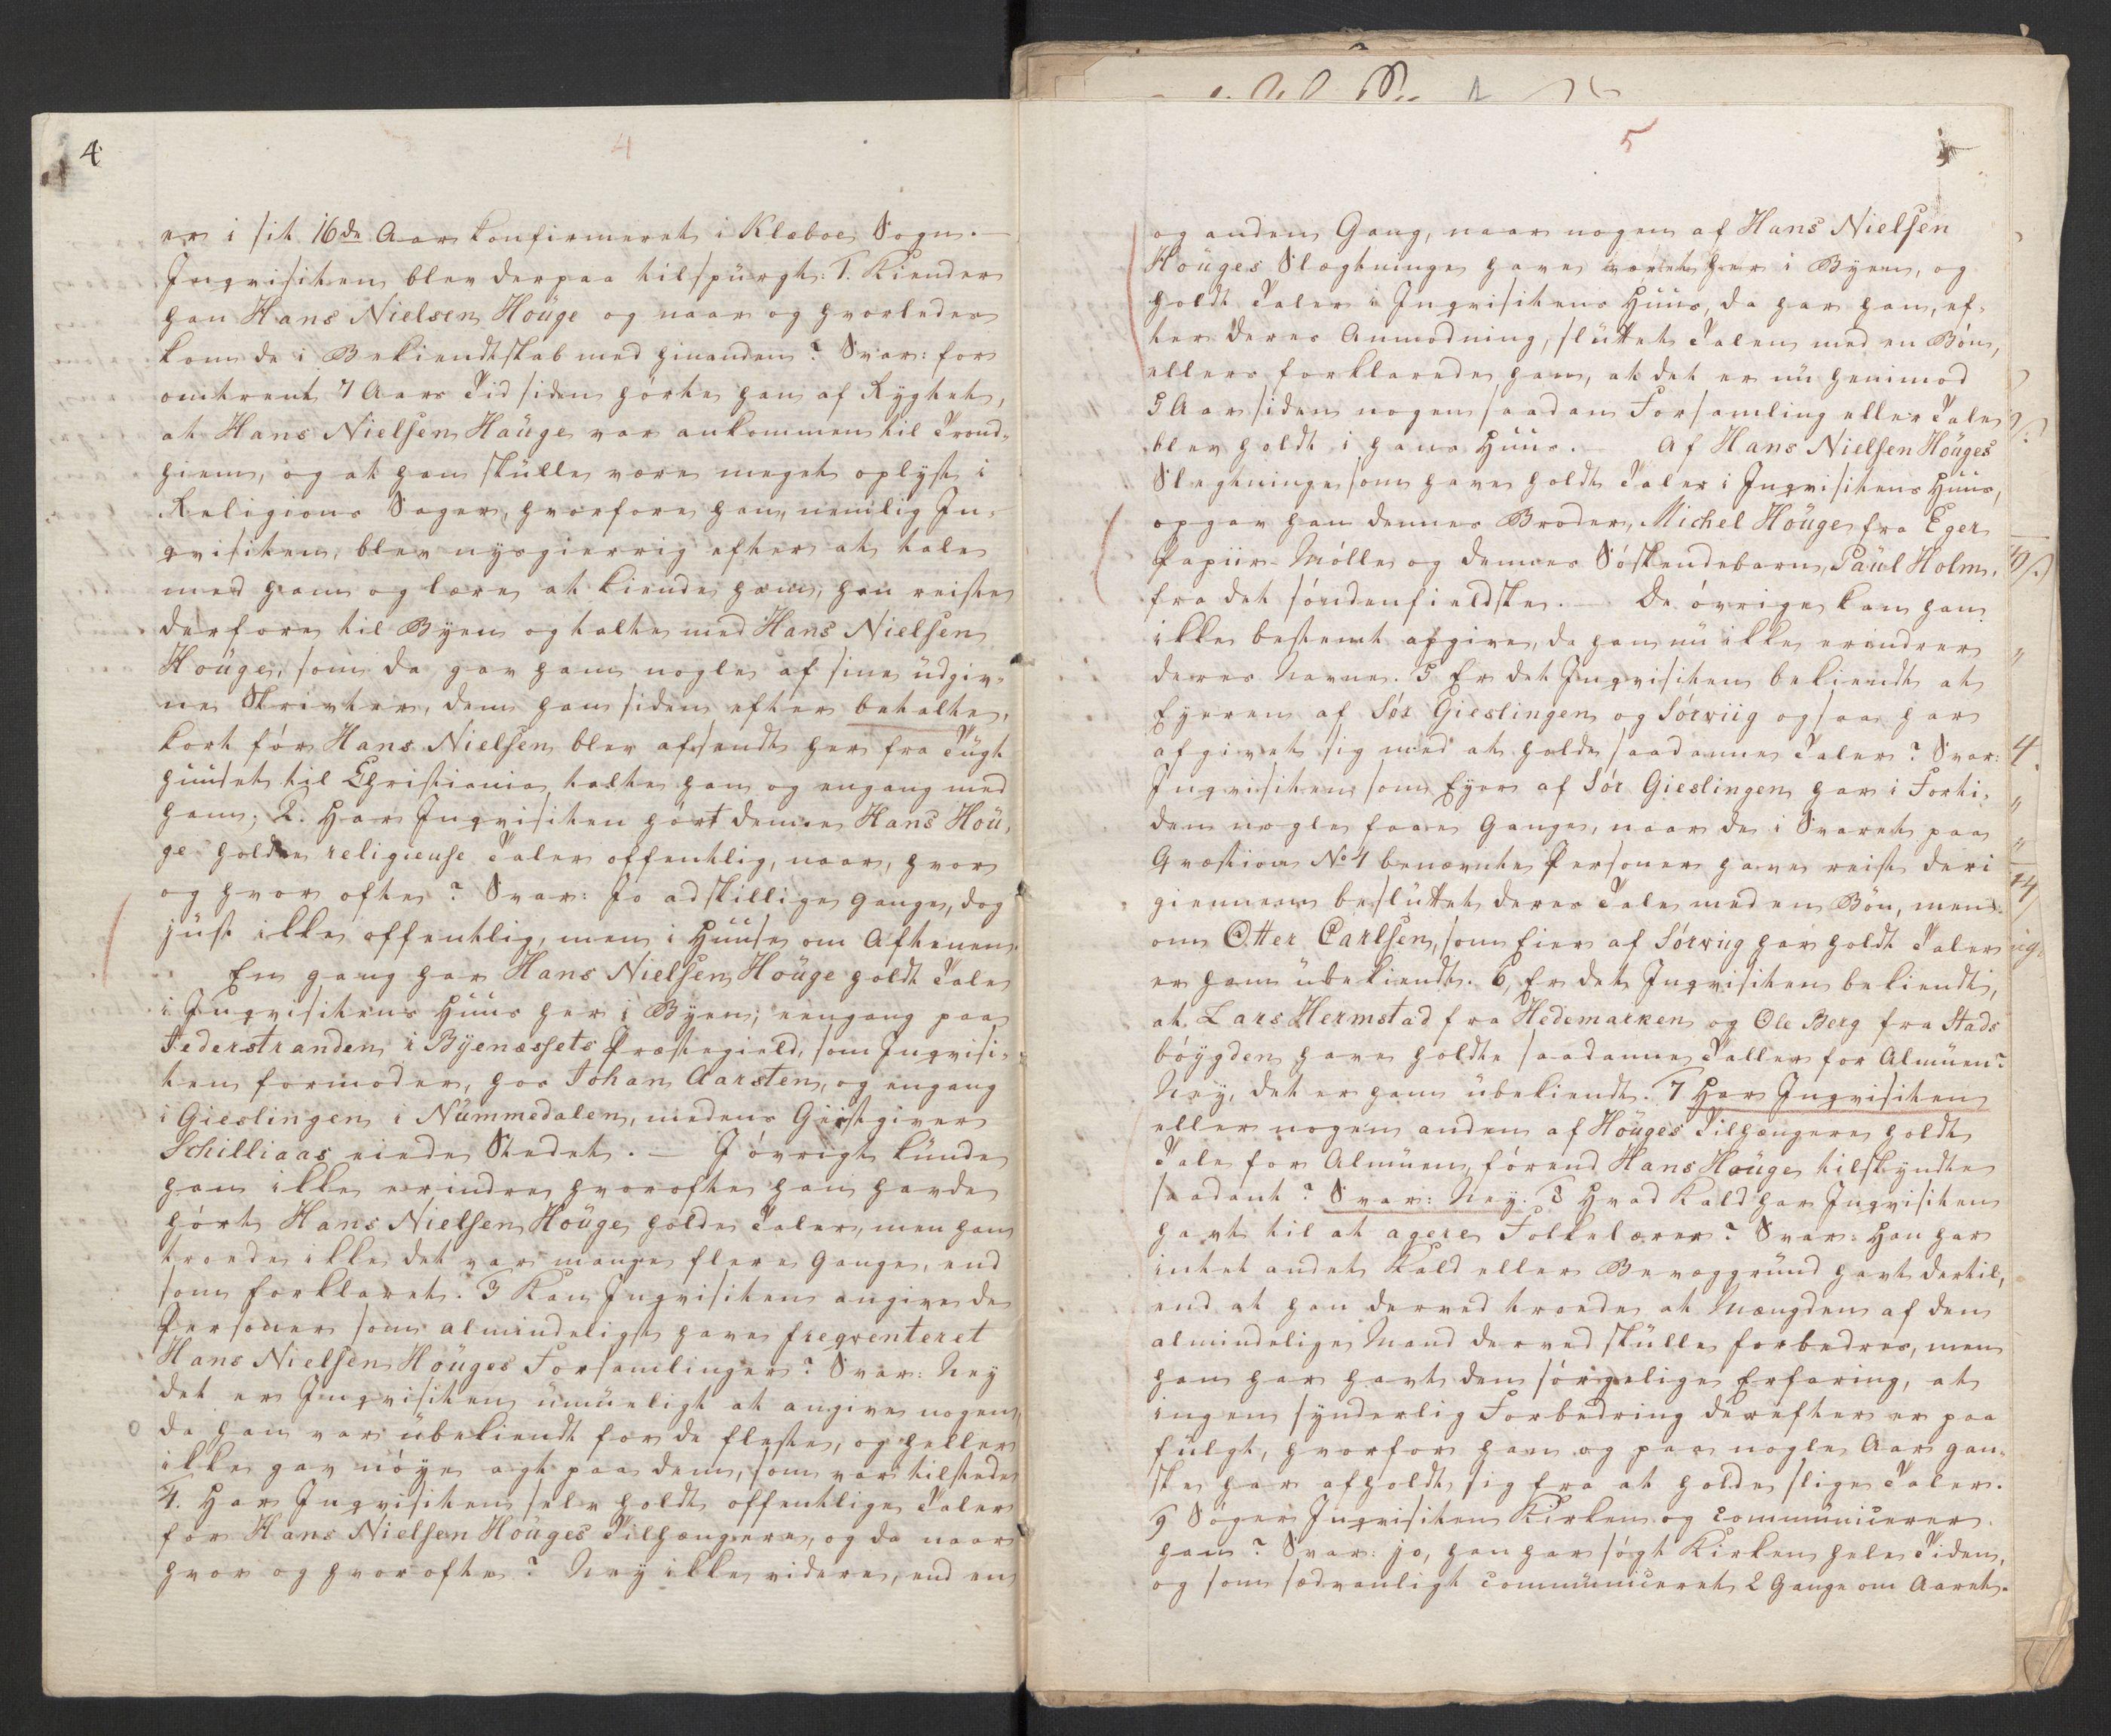 4
4
er i sit 16de Aar konfirmeret i Klæboe Sogn. —
Inqvisiten blev derpaa tilspürgt: 1. Kiender
han Hans Nielsen Höuge og naar og hvorledes
kom de i Bekiendtskab med hinanden? Svar: for
omtrent 7 Aars Tid siden hørte han af Rygtet,
at Hans Nielsen Haüge var ankommen til Trond-
hiem, og at han skülle være meget oplyst i
Religions Sager, hvorfore han, nemlig In-
qvisiten, blev nysgierrig efter at tale
med ham og lære at kiende ham, han reiste
derfore til Byen og talte med Hans Nielsen
Höuge, som da gav ham nogle af sine üdgiv-
ne Skrivter, dem han siden efter betalte,
kort før Hans Nielsen blev afsendt her fra Tügt
hüüset til Christiania, talte han og engang med
ham; 2. Har Inqvisiten hört denne Hans Höu-
ge holde religieuse Taler offentlig, naar, hvor
og hvor ofte? Svar: Jo adskillige Gange, dog
jüst ikke offentlig, men i Hüüse om Aftenen.
En gang har Hans Nielsen Höuge holdt Tale
i Inqvisitens Hüüs her i Byen; eengang paa
Federstranden i Byenæssets Præstegield, som Inqvisi-
ten formoder, hos Johan Aarsten, og engang
i Gieslingen i Nümmedalen, medens Giestgiver
Schilliaas eiede Stedet. — I øvrigt künde
han ikke erindre hvorofte han havde
hørt Hans Nielsen Höuge holde Taler, men han
troede ikke det var mange flere Gange, end
som forklaret. 3 Kan Inqvisiten angive de
Personer som almindeligst have freqventeret
Hans Nielsen Höuges Forsamlinger? Svar: Ney
det er Inqvisiten ümüeligt at angive nogen,
da han var übekiendt for de fleste, og heller
ikke gav nöye agt paa dem, som var tilstede
4. Har Inqvisiten selv holdt offentlige Taler
for Hans Nielsen Höuges Tilhængere, og da naar
hvor og hvor ofte? Ney ikke videre, end en
5
5
og anden Gang, naar nogen af Hans Nielsen
Höuges Slægtninge have været her i Byen, og
holdt Taler i Inqvisitens Hüüs, da har han, ef-
ter deres Anmodning, slüttet Talen med en Bøn,
ellers forklarede han, at det er nü henimod
5 Aar siden nogen saadan Forsamling eller Tale
blev holdt i hans Hüüs. — Af Hans Nielsen Höuges
Slegtninge som have holdt Taler i Inqvisitens Hüüs,
opgav han dennes Broder, Michel Höuge fra Eger
Papiir-Mølle og dennes Søskendebarn, Paül Holm,
fra det søndenfieldske. — De øvrige kan han
ikke bestemt afgive, da han nü ikke erindrer
deres Navne. 5 Er det Inqvisiten bekiendt at
Eyeren af Sør Gieslingen og Sørviig ogsaa har
afgivet sig med at holde saadanne Taler? Svar:
Inqvisiten som Eyer af Sør Gieslingen har i Forti-
den nogle faae Gange, naar de i Svaret paa
Qvæstion No 4 benævnte Personer have reist deri
giennem beslüttet deres Tale med en Bön, men
om Otter Carlsen, som Eier af Sørviig har holdt Taler
er ham übekiendt. 6, Er det Inqvisiten bekiendt,
at Lars Hermstad fra Hedemarken og Ole Berg fra Stads
bøygden have holdte saadanne Taller for Almüen?
Ney, det er ham übekiendt. 7 Har Inqvisiten
eller nogen anden af Höuges Tilhængere holdt
Tale for Almüen, førend Hans Höuge tilskyndte
saadant? Svar: Ney. 8 Hvad Kald har Inqvisiten
havt til at agere Folkelærer? Svar: Han har
intet andet Kald eller Bevæggründ havt dertil,
end at han derved troede at Mængden af den
almindelige Mand derved skülle forbedres, men
han har havt den sørgelige Erfaring, at
ingen synderlig Forbedring derefter er paa
fülgt, hvorfor han og paa nogle Aar gan-
ske har afholdt sig fra at holde slige Taler.
9 Søger Inqvisiten Kirken og communicerer
han? Svar: jo, han har søgt Kirken hele Tiden,
og som sædvanligt communiceret 2 Gange om Aaret.